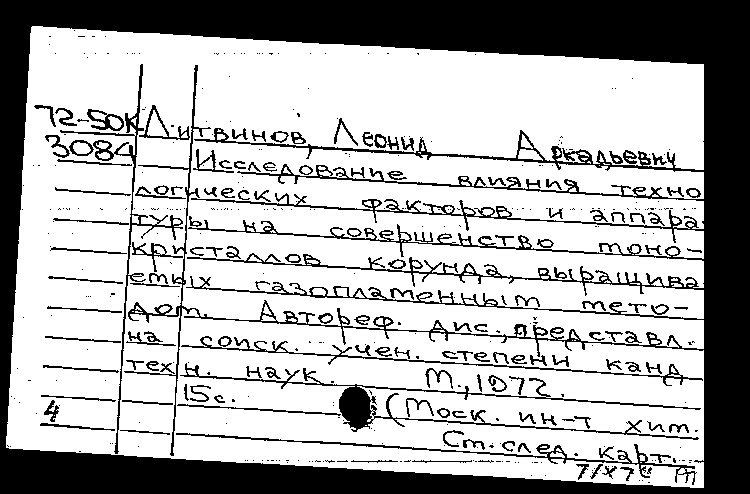 72-50К Литвинов, Леонид Аркадьевич
3084 Исследование влияния техно
логических факторов и аппара
туры на совершенство моно-
кристаллов корунда, выращива
емых газопламенным мето-
дом. Автореф. дис., представл.
на соиск. учен. степени канд
техн. наук. М., 1972.
15с. (Моск. ин-т хим.
4 Ст. след. карт.